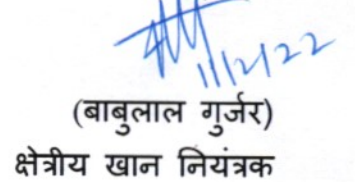 1/12/22
(बाबुलाल गुर्जर)
क्षेत्रीय खान नियंत्रक